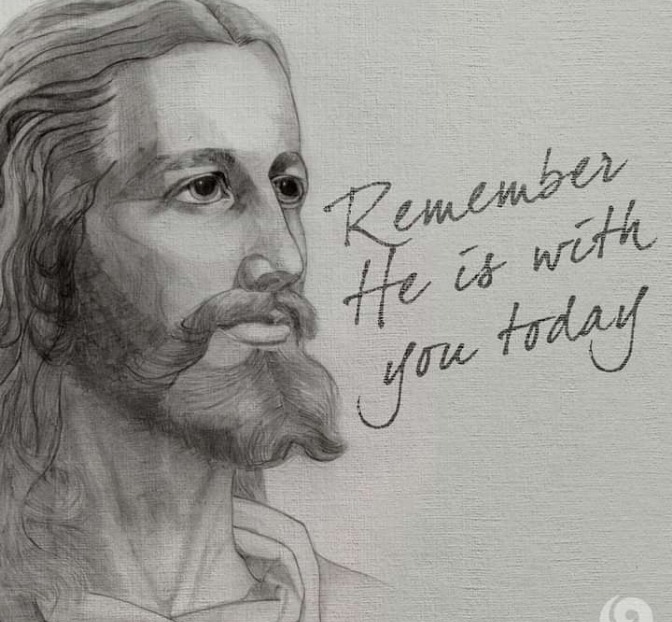 Remember
He is with
you today